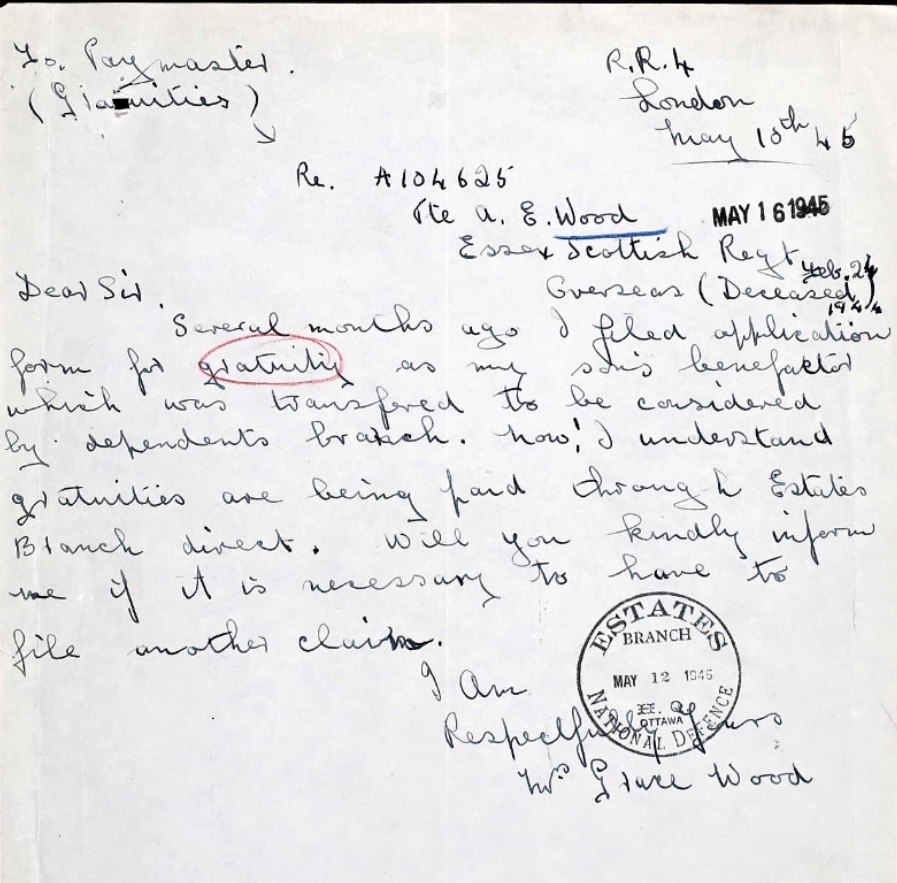 To. Paymaster.
(Gratuities)
R.R.4
London
May 10th 45
Re. A104625
Pte A. E. Wood
MAY 16 1945
Essex Scottish Regt
Overseas (Deceased)
Feb. 24
1944
Dear Sir.
Several months ago I filed application
form for gratuitiy as my son's benefactor
which was transfered to be considered
by dependents branch. Now! I understand
gratuities are being paid through Estates
Branch direct. Will you kindly inform
me if it is necessary to have to
file another claim.
I Am
Respectfully Yours
Mrs Grace Wood
ESTATES
BRANCH
MAY 12 1945
OTTAWA
NATIONAL DEFENCE